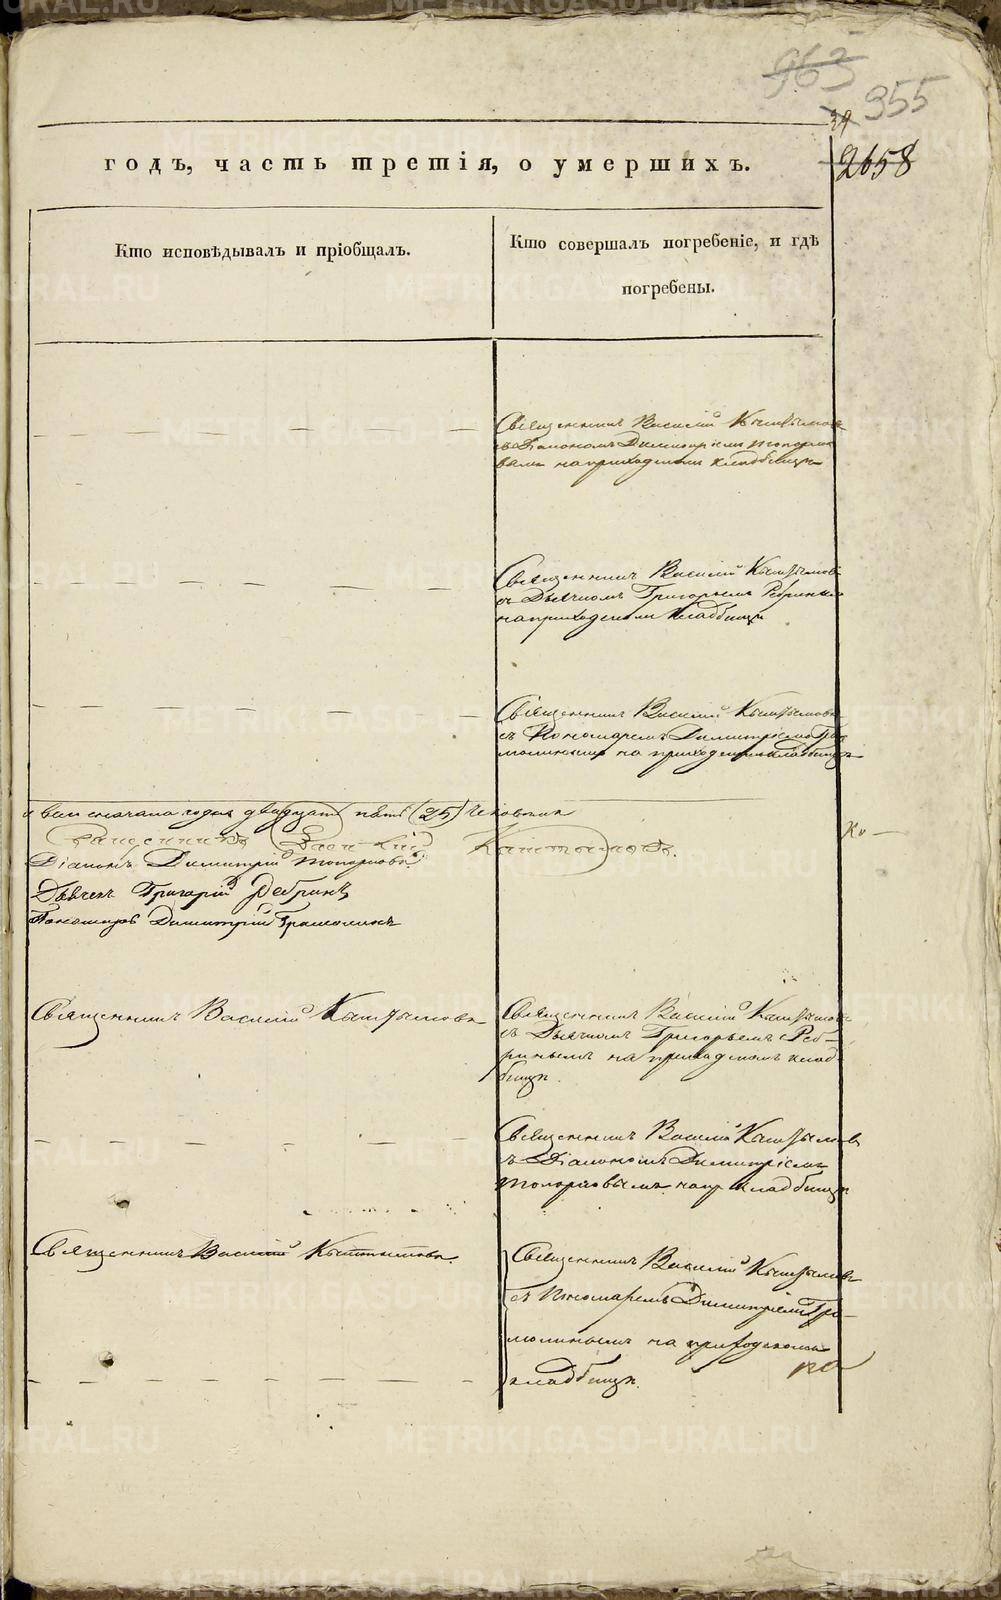 963
955
39
2658
годъ, часть третія, о умершихъ.
Кто исповѣдывалъ и пріобщалъ.
Кто совершалъ погребеніе, и гдѣ
погребены.
Священникъ Василій
Діакономъ Димитріемъ Топорко
вымъ на приходскомъ кладбищѣ
Священникъ Василій Кыштымовъ
съ Дьячкомъ Григорьемъ Ребринымъ
на приходскомъ кладбищѣ
Священникъ Василій Кыштымовъ
съ Пономаремъ Димитріемъ Гра
молинымъ на приходскомъ кладбищѣ
двадцать пять (25) человѣкъ
Священникъ Василій Кыштымовъ.
Діаконъ Димитрій Топорковъ
Дьячекъ Григорій Ребринъ
Пономарь Димитрій Грамолинъ
Ко —
Священникъ Василій Кыштымовъ
Священникъ Василій Кыштымовъ
съ Дьячкомъ Григорьемъ Реб-
ринымъ на приходскомъ клад
бищѣ.
Священникъ Василій Кыштымовъ
съ Діакономъ Димитріемъ
Топорковымъ на пр кладбищѣ
Священникъ Василій Кыштымовъ.
Священникъ Василій Кыштымовъ
съ Пономаремъ Димитріемъ Гра-
молинымъ на приходскомъ
кладбищѣ.
METRIKI.GASO-URAL.RU